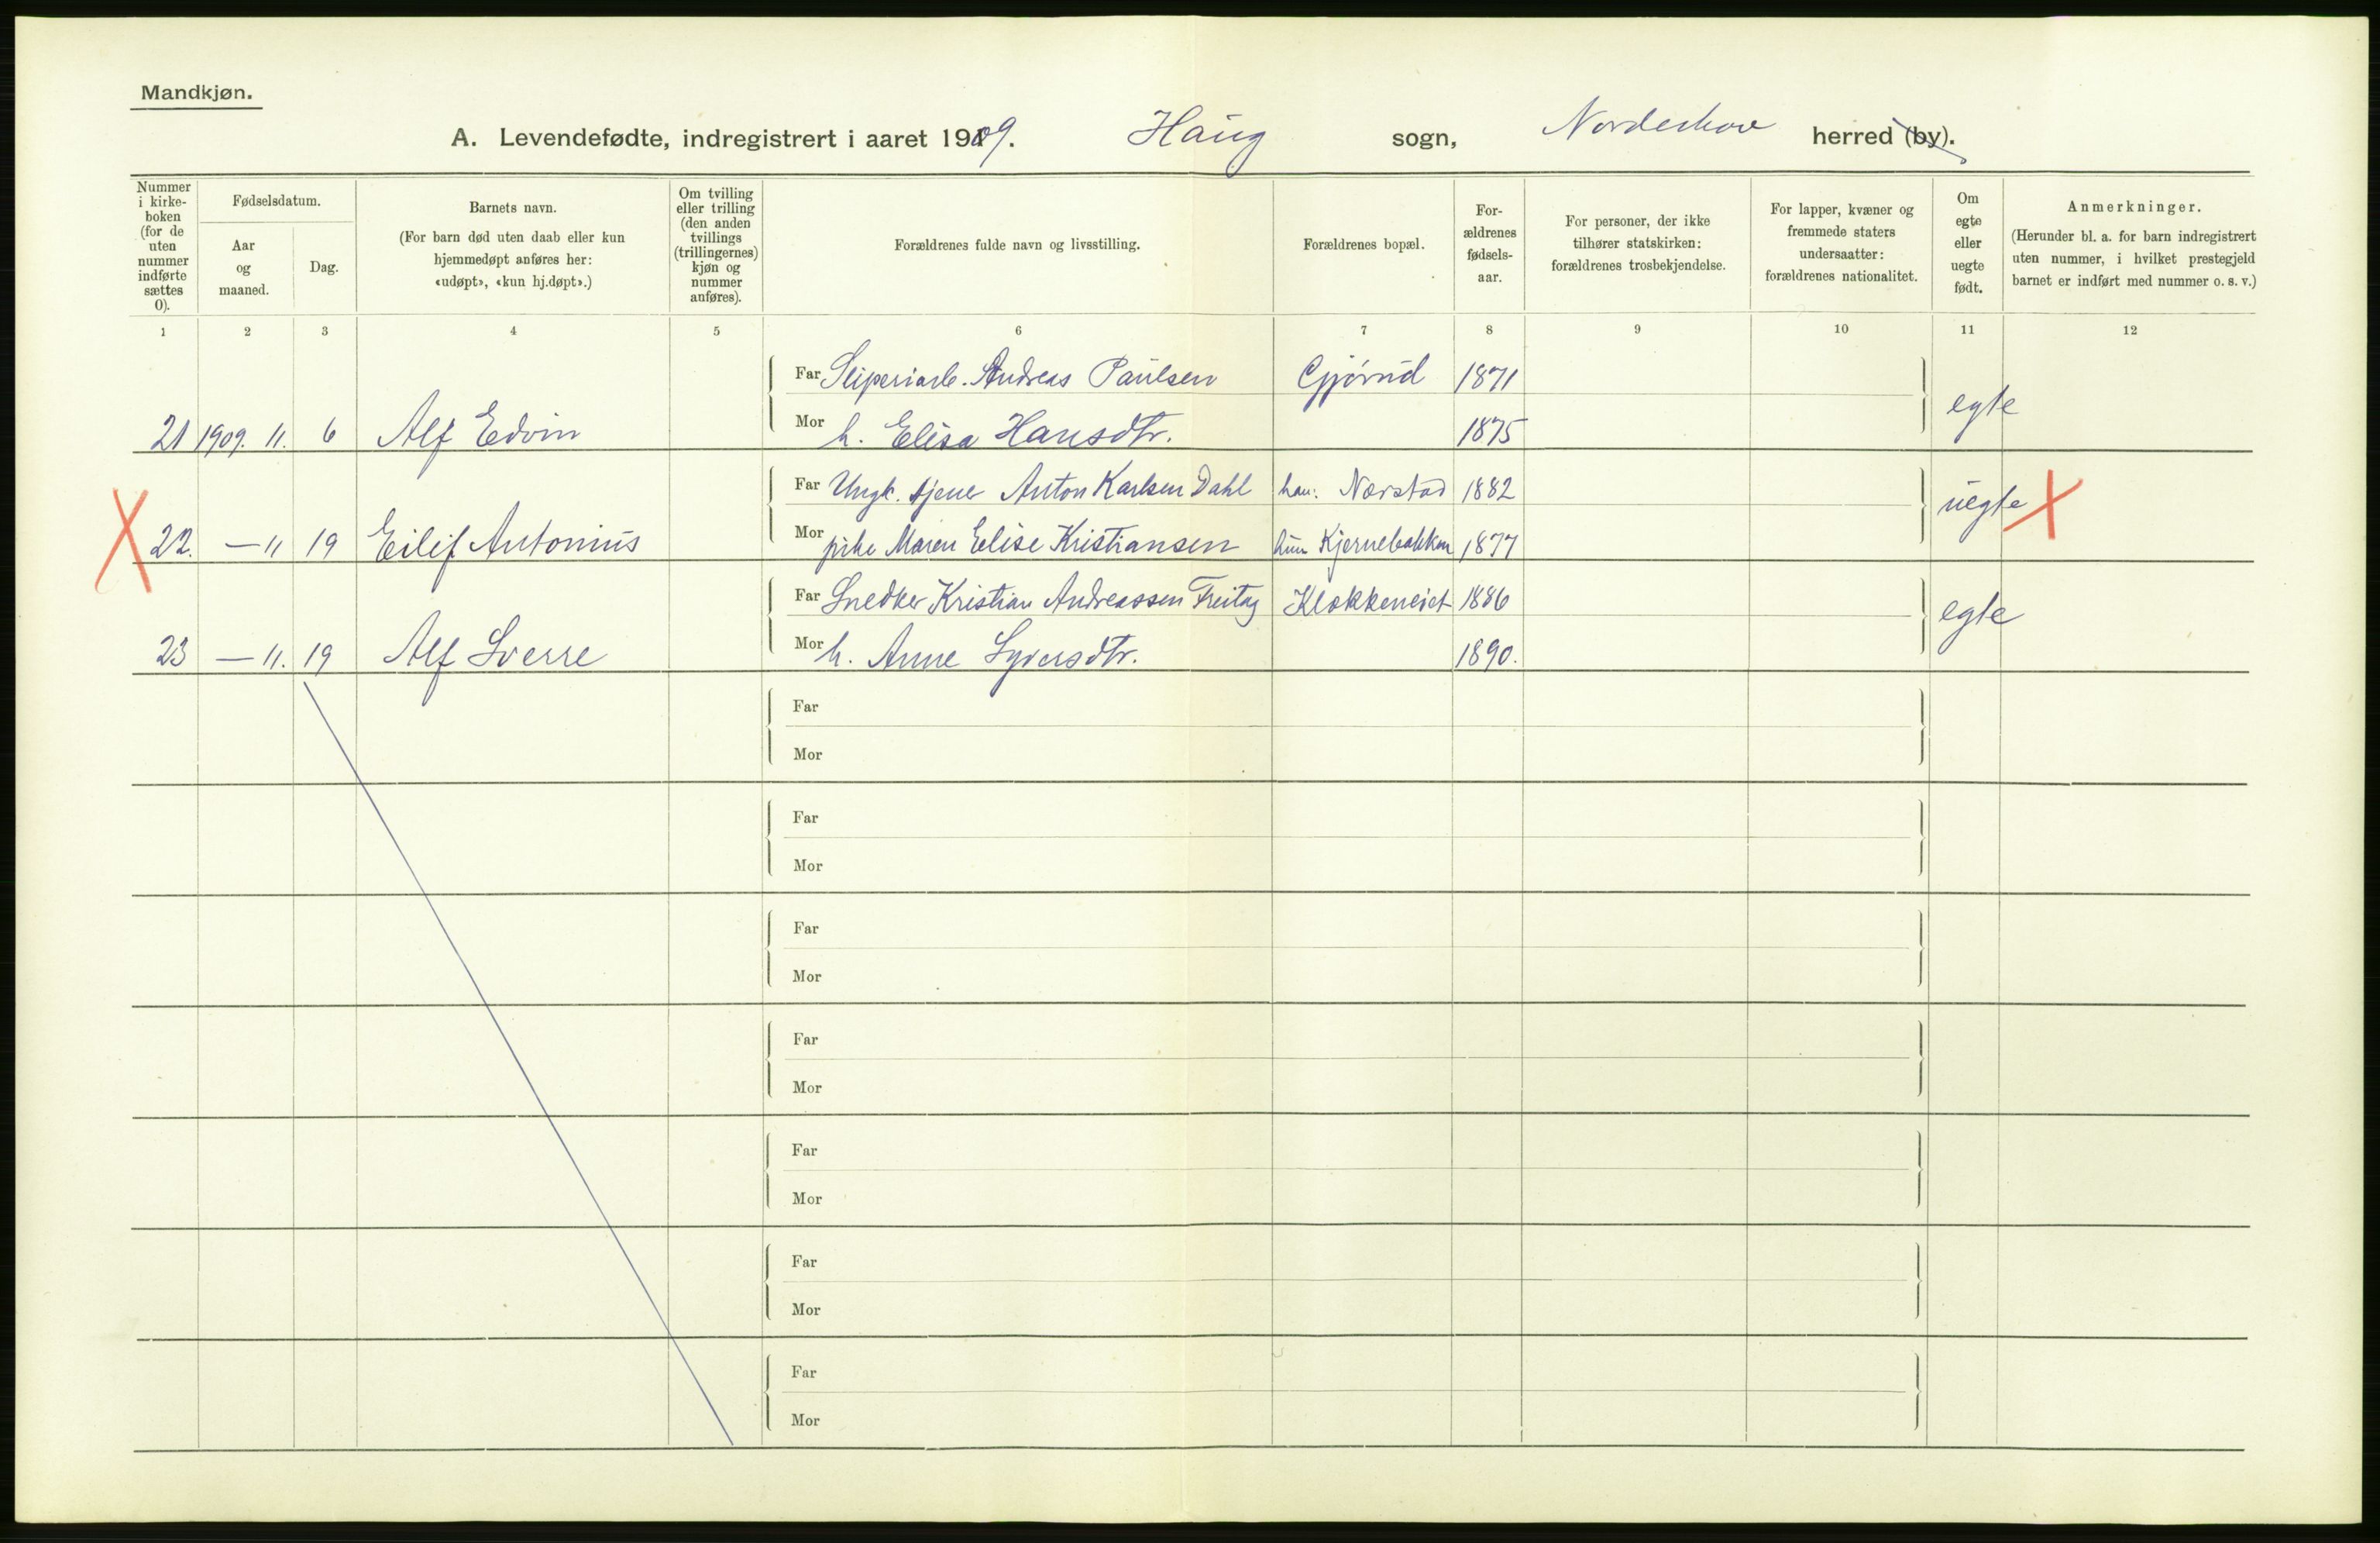 Mandkjøn.
A. Levendefødte, indregistrert i aaret 1909. Haug sogn, Norderhov herred (by).
Nummer i kirke-boken (for de uten nummer indførte sættes 0).
Fødselsdatum.
Aar og maaned.
Dag.
Barnets navn.
(For barn død uten daab eller kun
hjemmedøpt anføres her:
«udøpt», «kun hj.døpt».)
Om tvilling eller trilling (den anden tvillings (trillingernes) kjøn og nummer anføres).
Forældrenes fulde navn og livsstilling.
Forældrenes bopæl.
For-ældrenes fødsels-aar.
For personer, der ikke
tilhører statskirken:
forældrenes trosbekjendelse.
For lapper, kvæner og
fremmede staters
undersaatter:
forældrenes nationalitet.
Om egte eller uegte født.
Anmerkninger.
(Herunder bl. a. for barn indregistrert
uten nummer, i hvilket prestegjeld
barnet er indført med nummer o. s. v.)
1 2 3 4 5 6 7 8 9 10 11 12
Far Sliperiarb. Andreas Paulsen Gjørud 1871
21 1909. 11. 6 Alf Edvin Mor h. Elisa Hansdtr. 1875 egte
Far Ungk. tjener Anton Karlsen Dahl han: Nærstad 1882
X 22. — 11 19 Eilif Antonius Mor pike Maren Elise Kristiansen hun Kjernebakken 1877 uegte X
Far Snedker Kristian Andreassen Freitag Klokkereiet 1886
23 — 11. 19 Alf Sverre Mor h. Anne Syversdtr. 1890. egte
Far
Mor
Far
Mor
Far
Mor
Far
Mor
Far
Mor
Far
Mor
Far
Mor